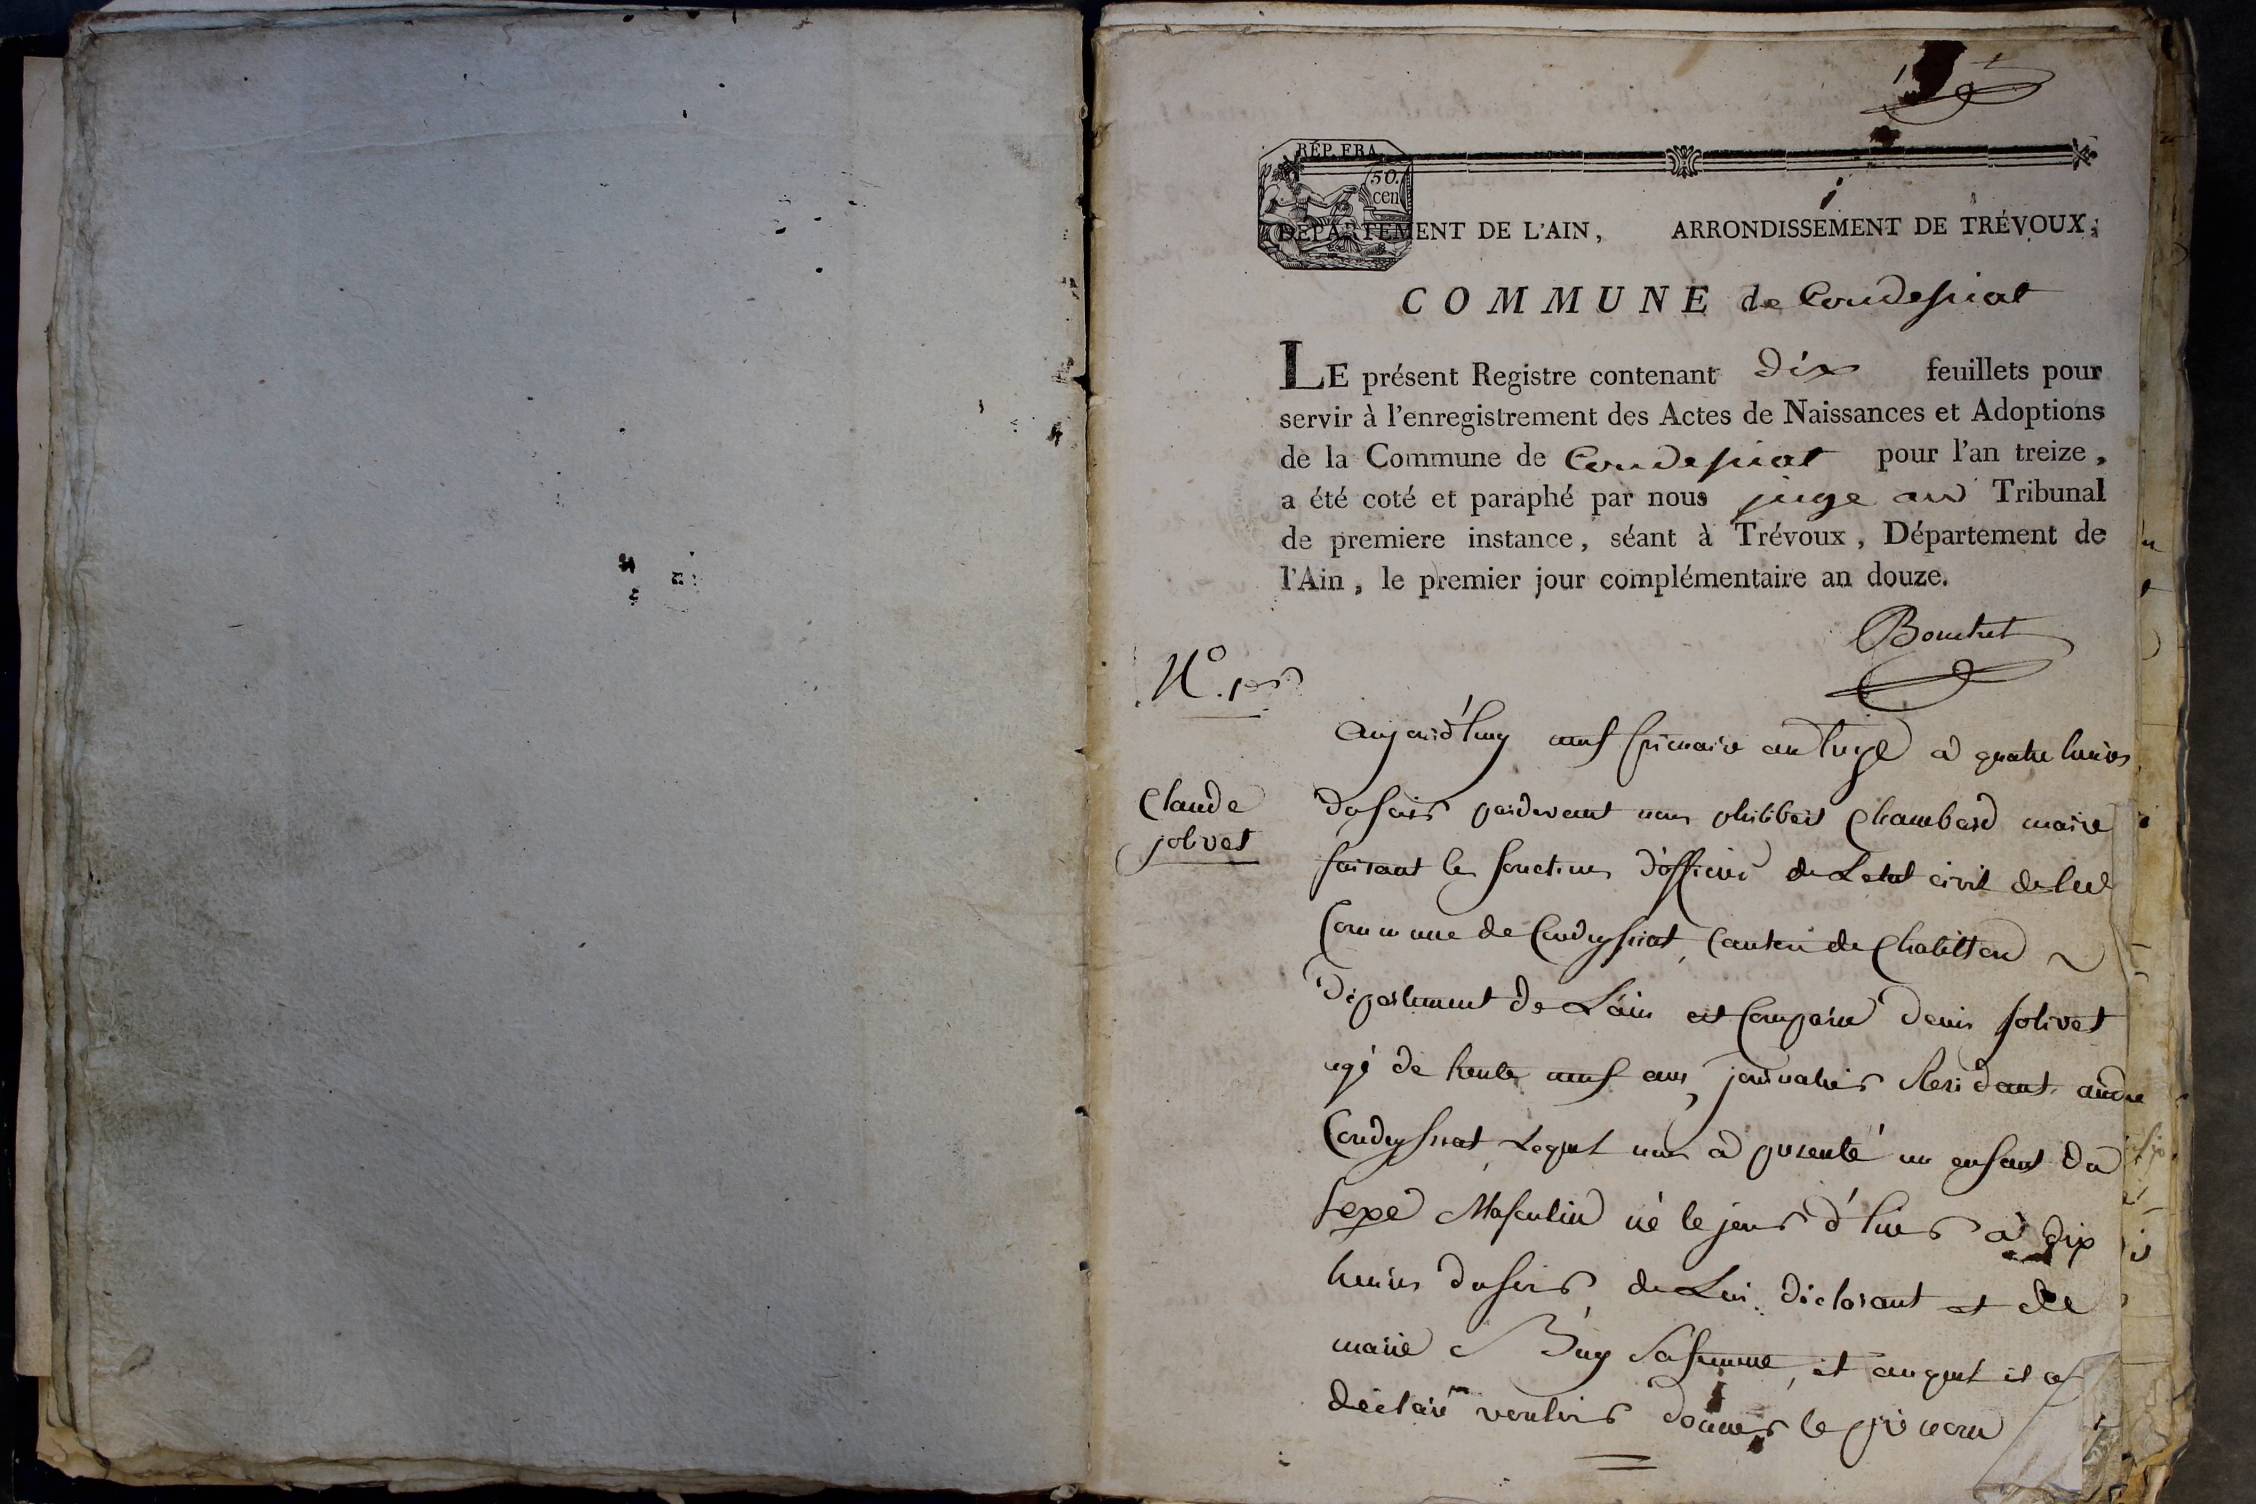 RÉP. FRA.
50.
cen
DÉPARTEMENT DE L'AIN, ARRONDISSEMENT DE TRÉVOUX,
COMMUNE de Condessiat
LE présent Registre contenant Dix feuillets pour
servir à l'enregistrement des Actes de Naissances et Adoptions
de la Commune de Condessiat pour l'an treize,
a été coté et paraphé par nous juge au Tribunal
de premiere instance, séant à Trévoux, Département de
l'Ain, le premier jour complémentaire an douze.
N°. 1er
aujourd'huy neuf frimaire an treize a quatre heures
Claude
jolivet
du soir pardevant nous philibert Chambard maire
faisant les fonctions d'officier de Letat civil de la
Commune de Condeyssiat, Canton de Chatillon
département de L'ain est Comparu denis jolivet
agé de trente neuf ans, journalier Residant audit
Condeyssiat, Lequel nous a presenté un enfant du
sexe Masculin né le jour d'hier a dix
heures du soir de Lui déclarant et de
marie Buy Sa femme, et auquel il a
déclaré vouloir donner le prénom